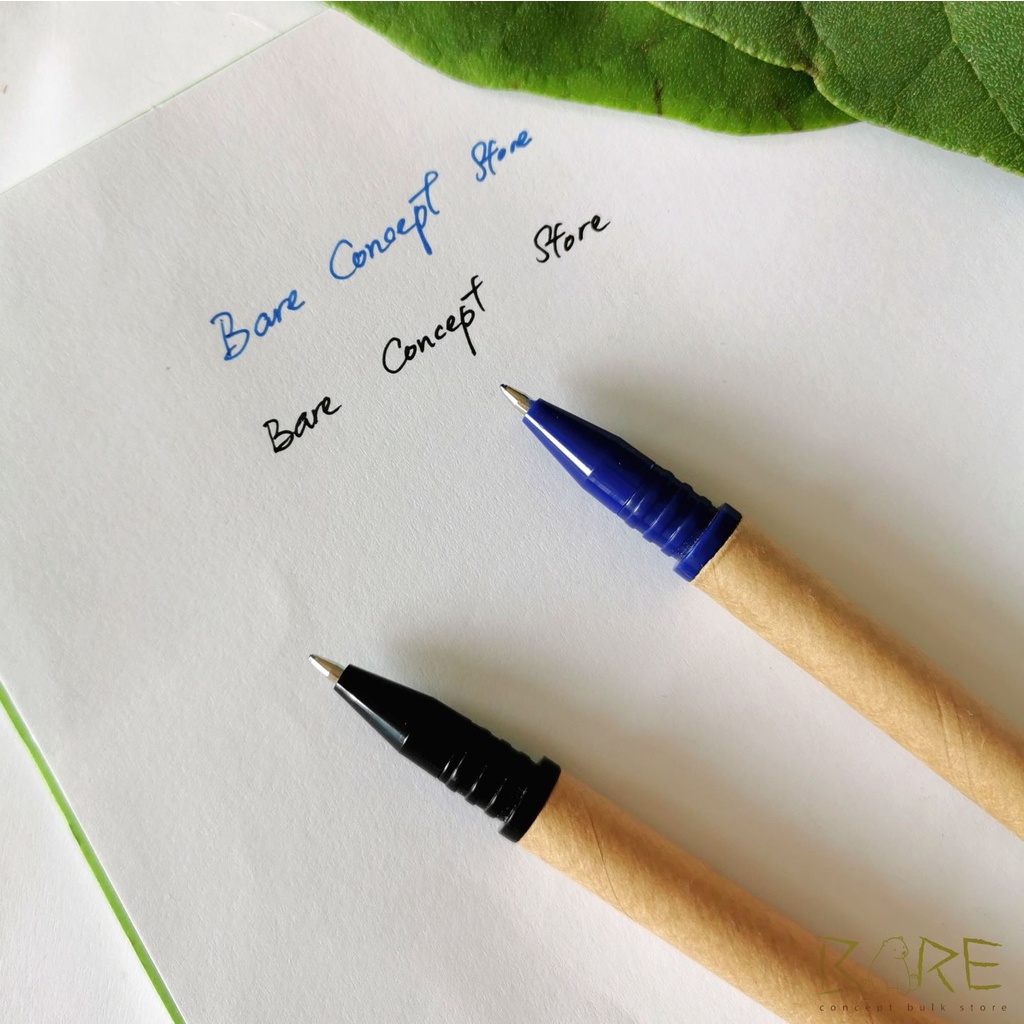 Bare Concept Store
Bare Concept Store
BARE
concept bulk store